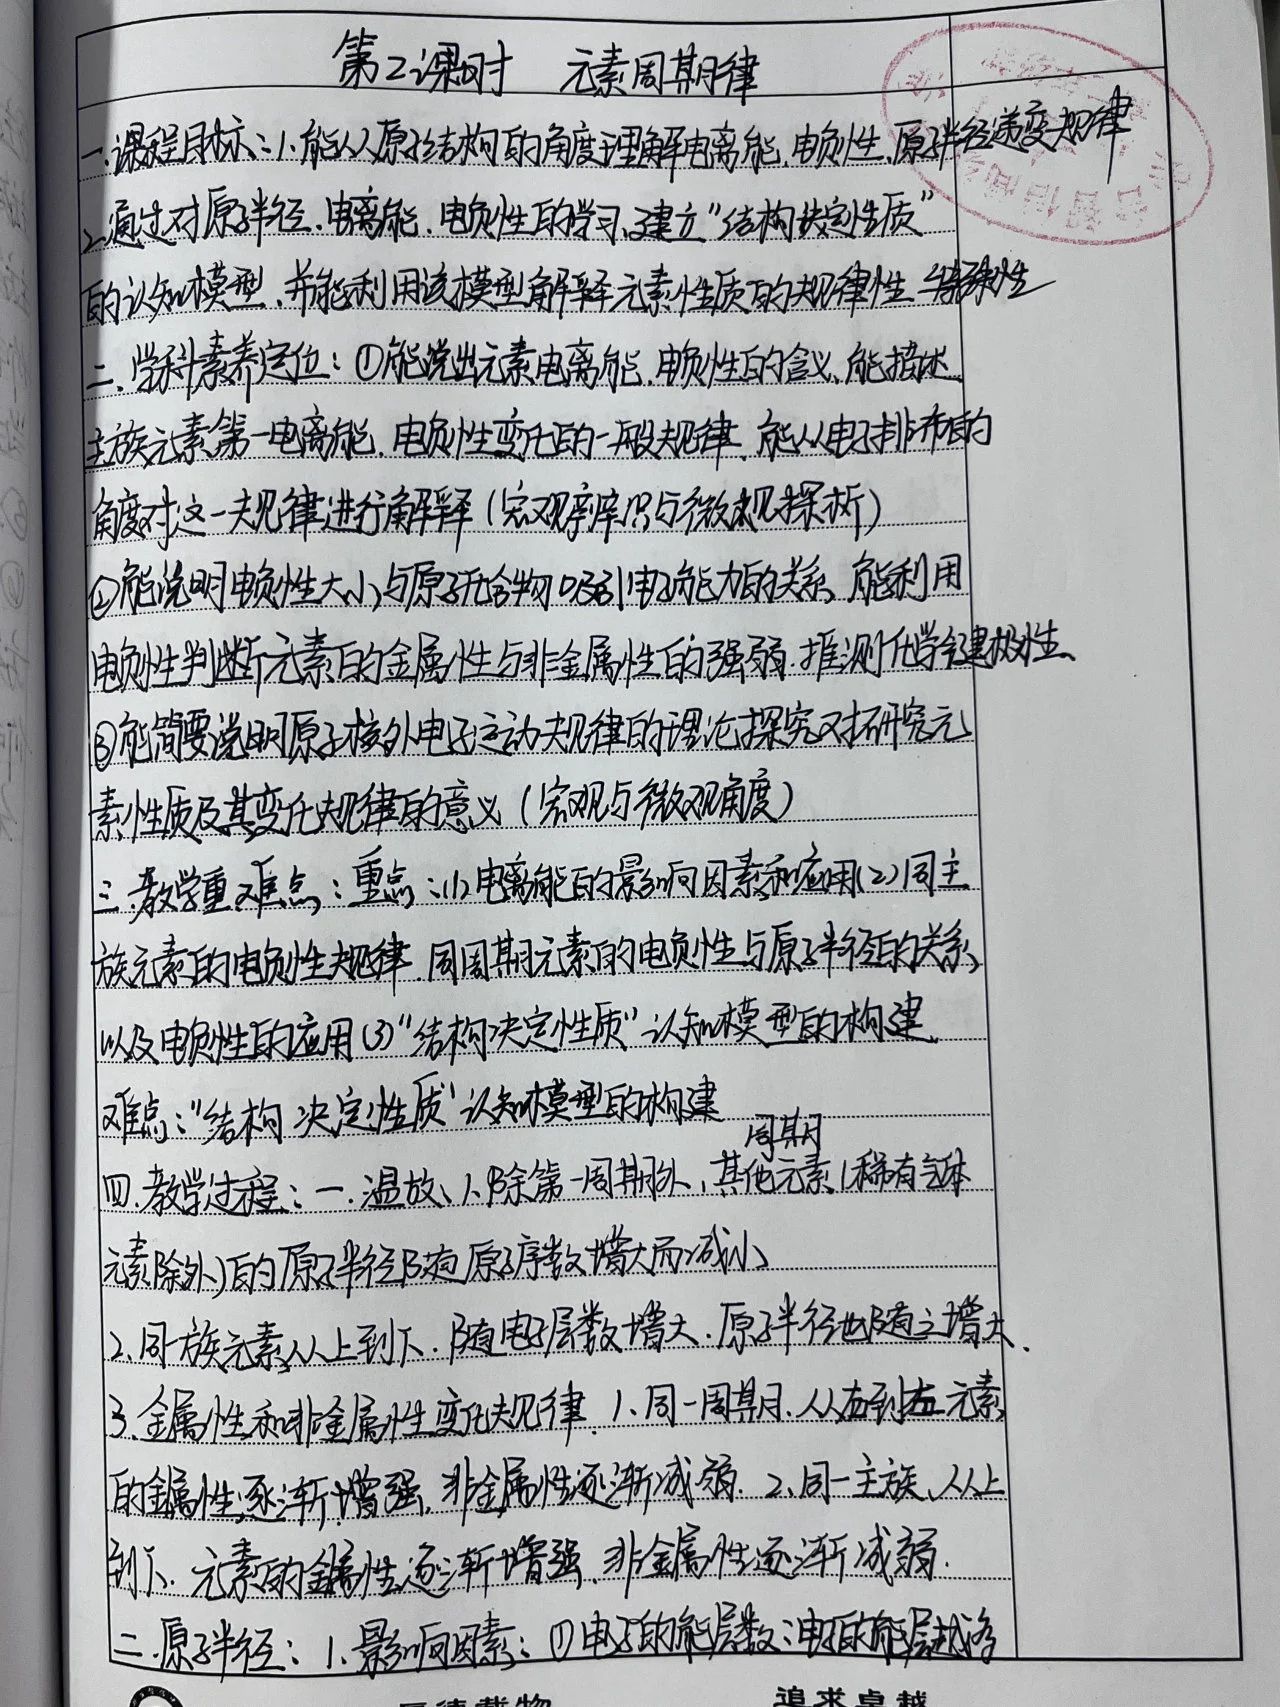 第2课时 元素周期律
一.课程目标:1.能从原子结构的角度理解电离能.电负性.原子半径递变规律
2.通过对原子半径.电离能.电负性的学习,建立"结构决定性质"
的认知模型.并能利用该模型解释元素性质的规律性.特殊性
二.学科素养定位:①能说出元素电离能.电负性的含义,能描述
主族元素第一电离能.电负性变化的一般规律.能从电子排布的
角度对这一规律进行解释(宏观辨识与微观探析)
②能说明电负性大小与原子在化合物吸引电子能力的关系,能利用
电负性判断元素的金属性与非金属性的强弱.推测化学键极性.
③能简要说明原子核外电子运动规律的理论探究对研究元
素性质及其变化规律的意义(宏观与微观角度)
三.教学重难点:重点:(1)电离能的影响因素和应用(2)同主
族元素的电负性规律.同周期元素的电负性与原子半径的关系,
以及电负性的应用(3)"结构决定性质"认知模型的构建.
难点:"结构决定性质"认知模型的构建
周期
四.教学过程:一.温故、1.除第一周期外,其他元素(稀有气体
元素除外)的原子半径随原子序数增大而减小
2.同一族元素,从上到下.随电子层数增大.原子半径也随之增大.
3.金属性和非金属性变化规律.1.同一周期.从右到左元素
的金属性逐渐增强,非金属性逐渐减弱.2.同一主族,从上
到下.元素的金属性逐渐增强,非金属性逐渐减弱.
二.原子半径:1.影响因素:①电子的能层数:电子的能层越多
追求卓越